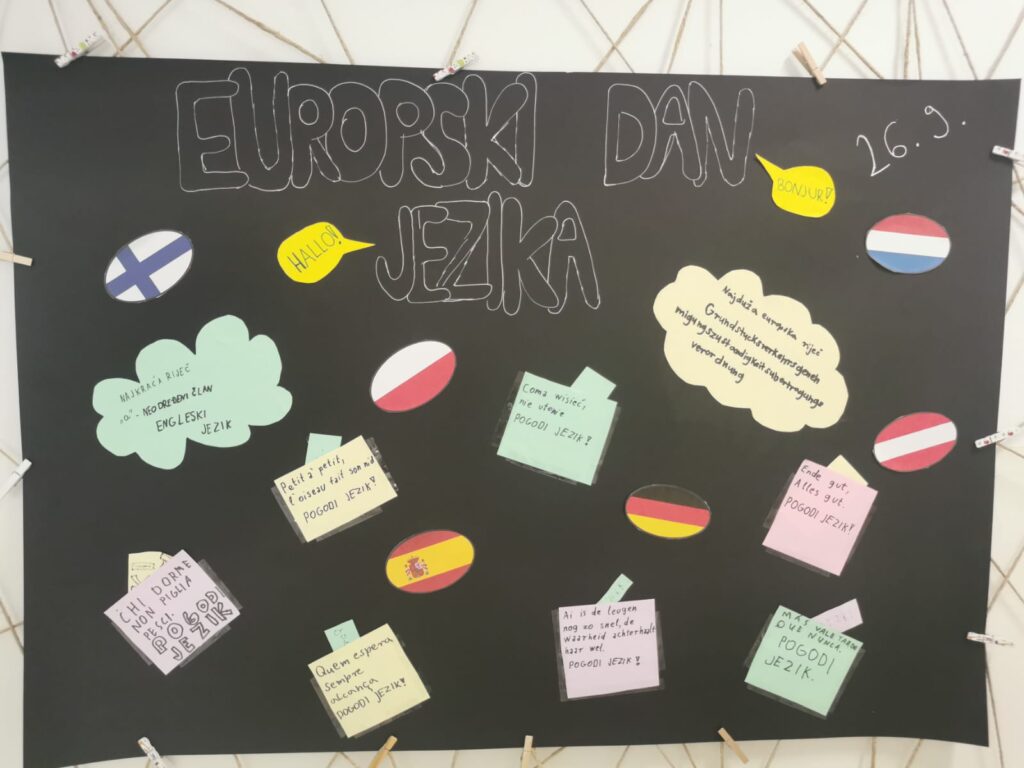 EUROPSKI DAN
JEZIKA
26.9.
BONJUR!
HALLO!
NAJKRAĆA RIJEČ
"a" - NEODREĐENI ČLAN
ENGLESKI
JEZIK
Najduža europska riječ
Grundstücksverkehrsgeneh
migungszuständigkeitsübertragungs
verordnung
Coma wisieć,
nie utonie
POGODI JEZIK!
Petit à petit,
l'oiseau fait son nid
POGODI JEZIK!
Ende gut,
Alles gut.
POGODI JEZIK!
CHI DORME
NON PIGLIA
PESCI.
POGODI
JEZIK
Quem espera
sempre
alcança
POGODI JEZIK!
Al is de leugen
nog zo snel, de
waarheid achterhaalt
haar wel.
POGODI JEZIK!
MAS VALE TARDE
QUE NUNCA.
POGODI
JEZIK.